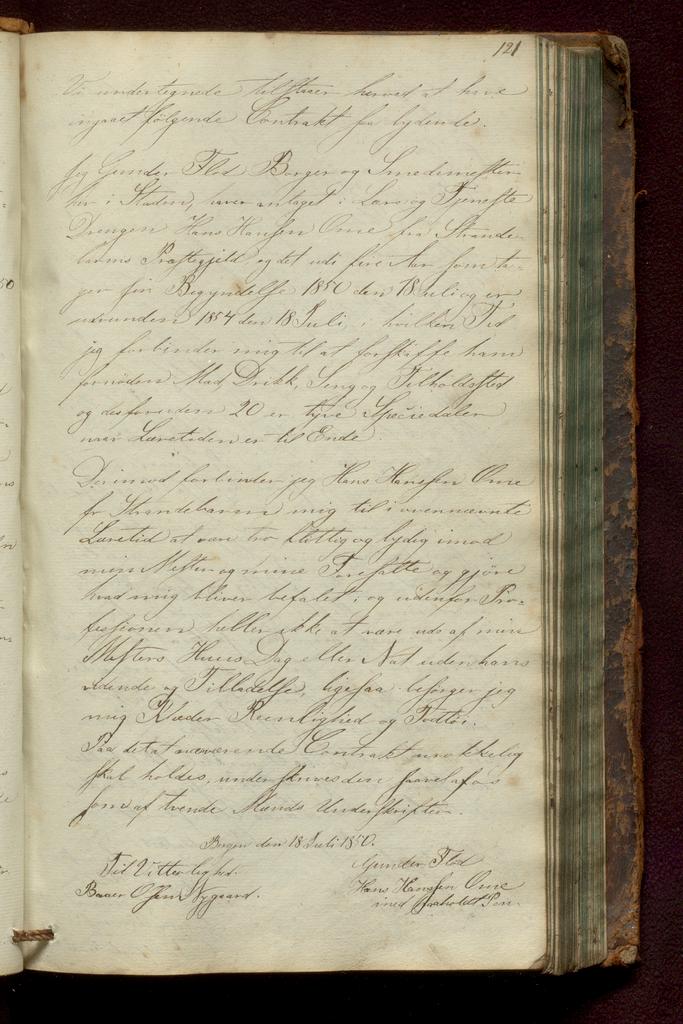 121
Vi undertegnede tilstaaer herved at have
ingaaet følgende Contrakt saa lydende.
Jeg Gunder Flod Borger og Smedemester
her i Staden, haver antaget i Lære og Tjeneste
Drengen Hans Hansen Ome fra Strande-
barms Præstegjeld og det udi fire Aar som ta-
ger sin Begyndelse 1850 den 18 Juli og er
udrunden 1854 den 18 Juli, i hvilken Tid
jeg forbinder mig til at forskaffe ham
fornøden Mad, Drikk, Seng og Tilholdssted
og desforuden 20 er tyve Speciedaler
naar Læretiden er til Ende.
Derimod forbinder jeg Hans Hansen Ome
fr Strandebarm mig til i ovennævnte
Læretid at være tro flittig og lydig imod
min Mester og mine Foresatte og gjøre
hvad mig bliver befalet, og udenfor Pro-
fessionen heller ikke at være ude af min
Mesters Huus Dag eller Nat uden hans
vidende og Tilladelse, ligesaa besørger jeg
mig Klæder Reenlighed og Fodtøi.
Paa det at nærværende Contrakt urokkelig
skal holdes, underskrives den saavel af os
som af tvende Mænds Underskrifter.
Bergen den 18 Juli 1850.
Til Vitterlighed.
Gunder Flod
Nygaard.
Hans Hansen Ome
med paaholdt Pen.